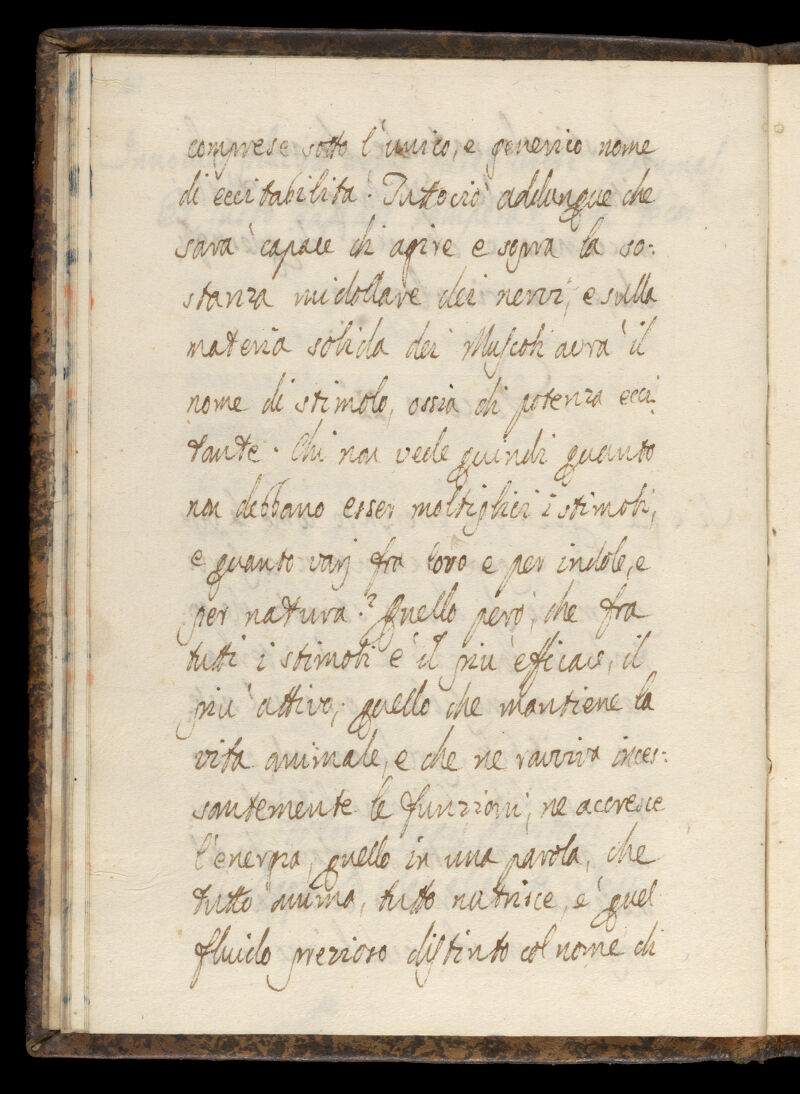 comprese sotto l'unico, e generico nome
di eccitabilità. Tuttociò addunque che
sarà capace di agire e sopra la so:
stanza midollare dei nervi, e sulla
materia solida dei Muscoli avrà il
nome di stimolo, ossia di potenza ecci:
tante. Chi non vede quindi quanto
non debbano esser moltiplici i stimoli,
e quanto varj fra loro e per indole, e
per natura? Quello però, che fra
tutti i stimoli è il più efficace, il
più attivo, quello che mantiene la
vita animale, e che ne ravviva inces:
santemente le funzioni, ne accresce
l'energia, quello in una parola, che
tutto anima, tutto nutrisce, è quel
fluido prezioso distinto col nome di